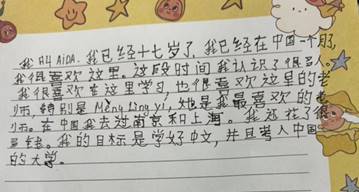 我叫AiDA. 我已经十七岁了, 我已经在中国一个月,
我很喜欢这里。这段时间我认识了很多人。
我很喜欢在这里学习, 也很喜欢这里的老
师, 特别是Meng Ling yi, 她是我最喜欢的老
师。在中国我去过南京和上海。我还花了很
多钱。我的目标是学好中文, 并且考入中国
的大学。